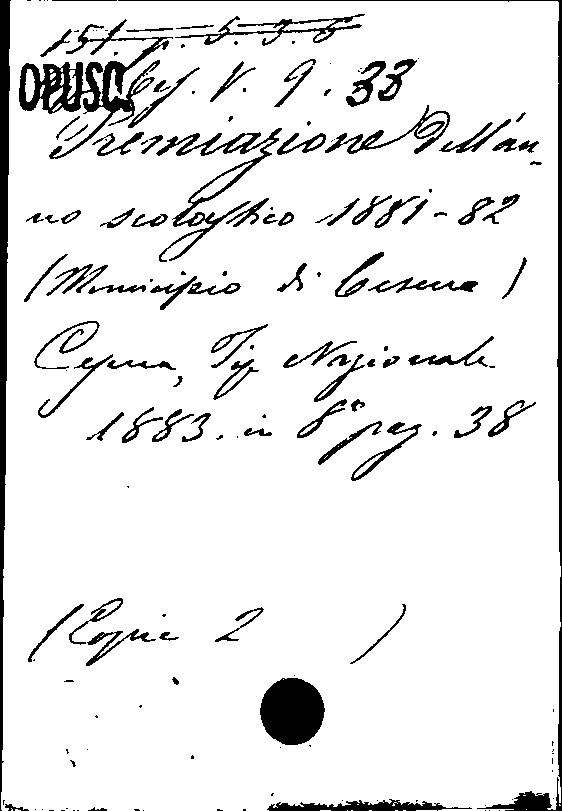 151. p. 5. 3. 6
OPUSC. Ces. V. 9. 33
Premiazione dell'an-
no scolastico 1881-82
(Municipio di Cesena)
Cesena, Tip. Nazionale
1883. in 8° pag. 38
(Copie 2 )